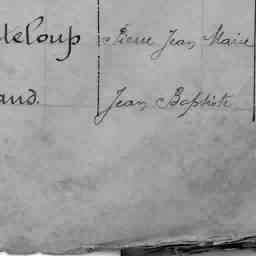 teloup Pierre Jean Marie
and. Jean Baptiste